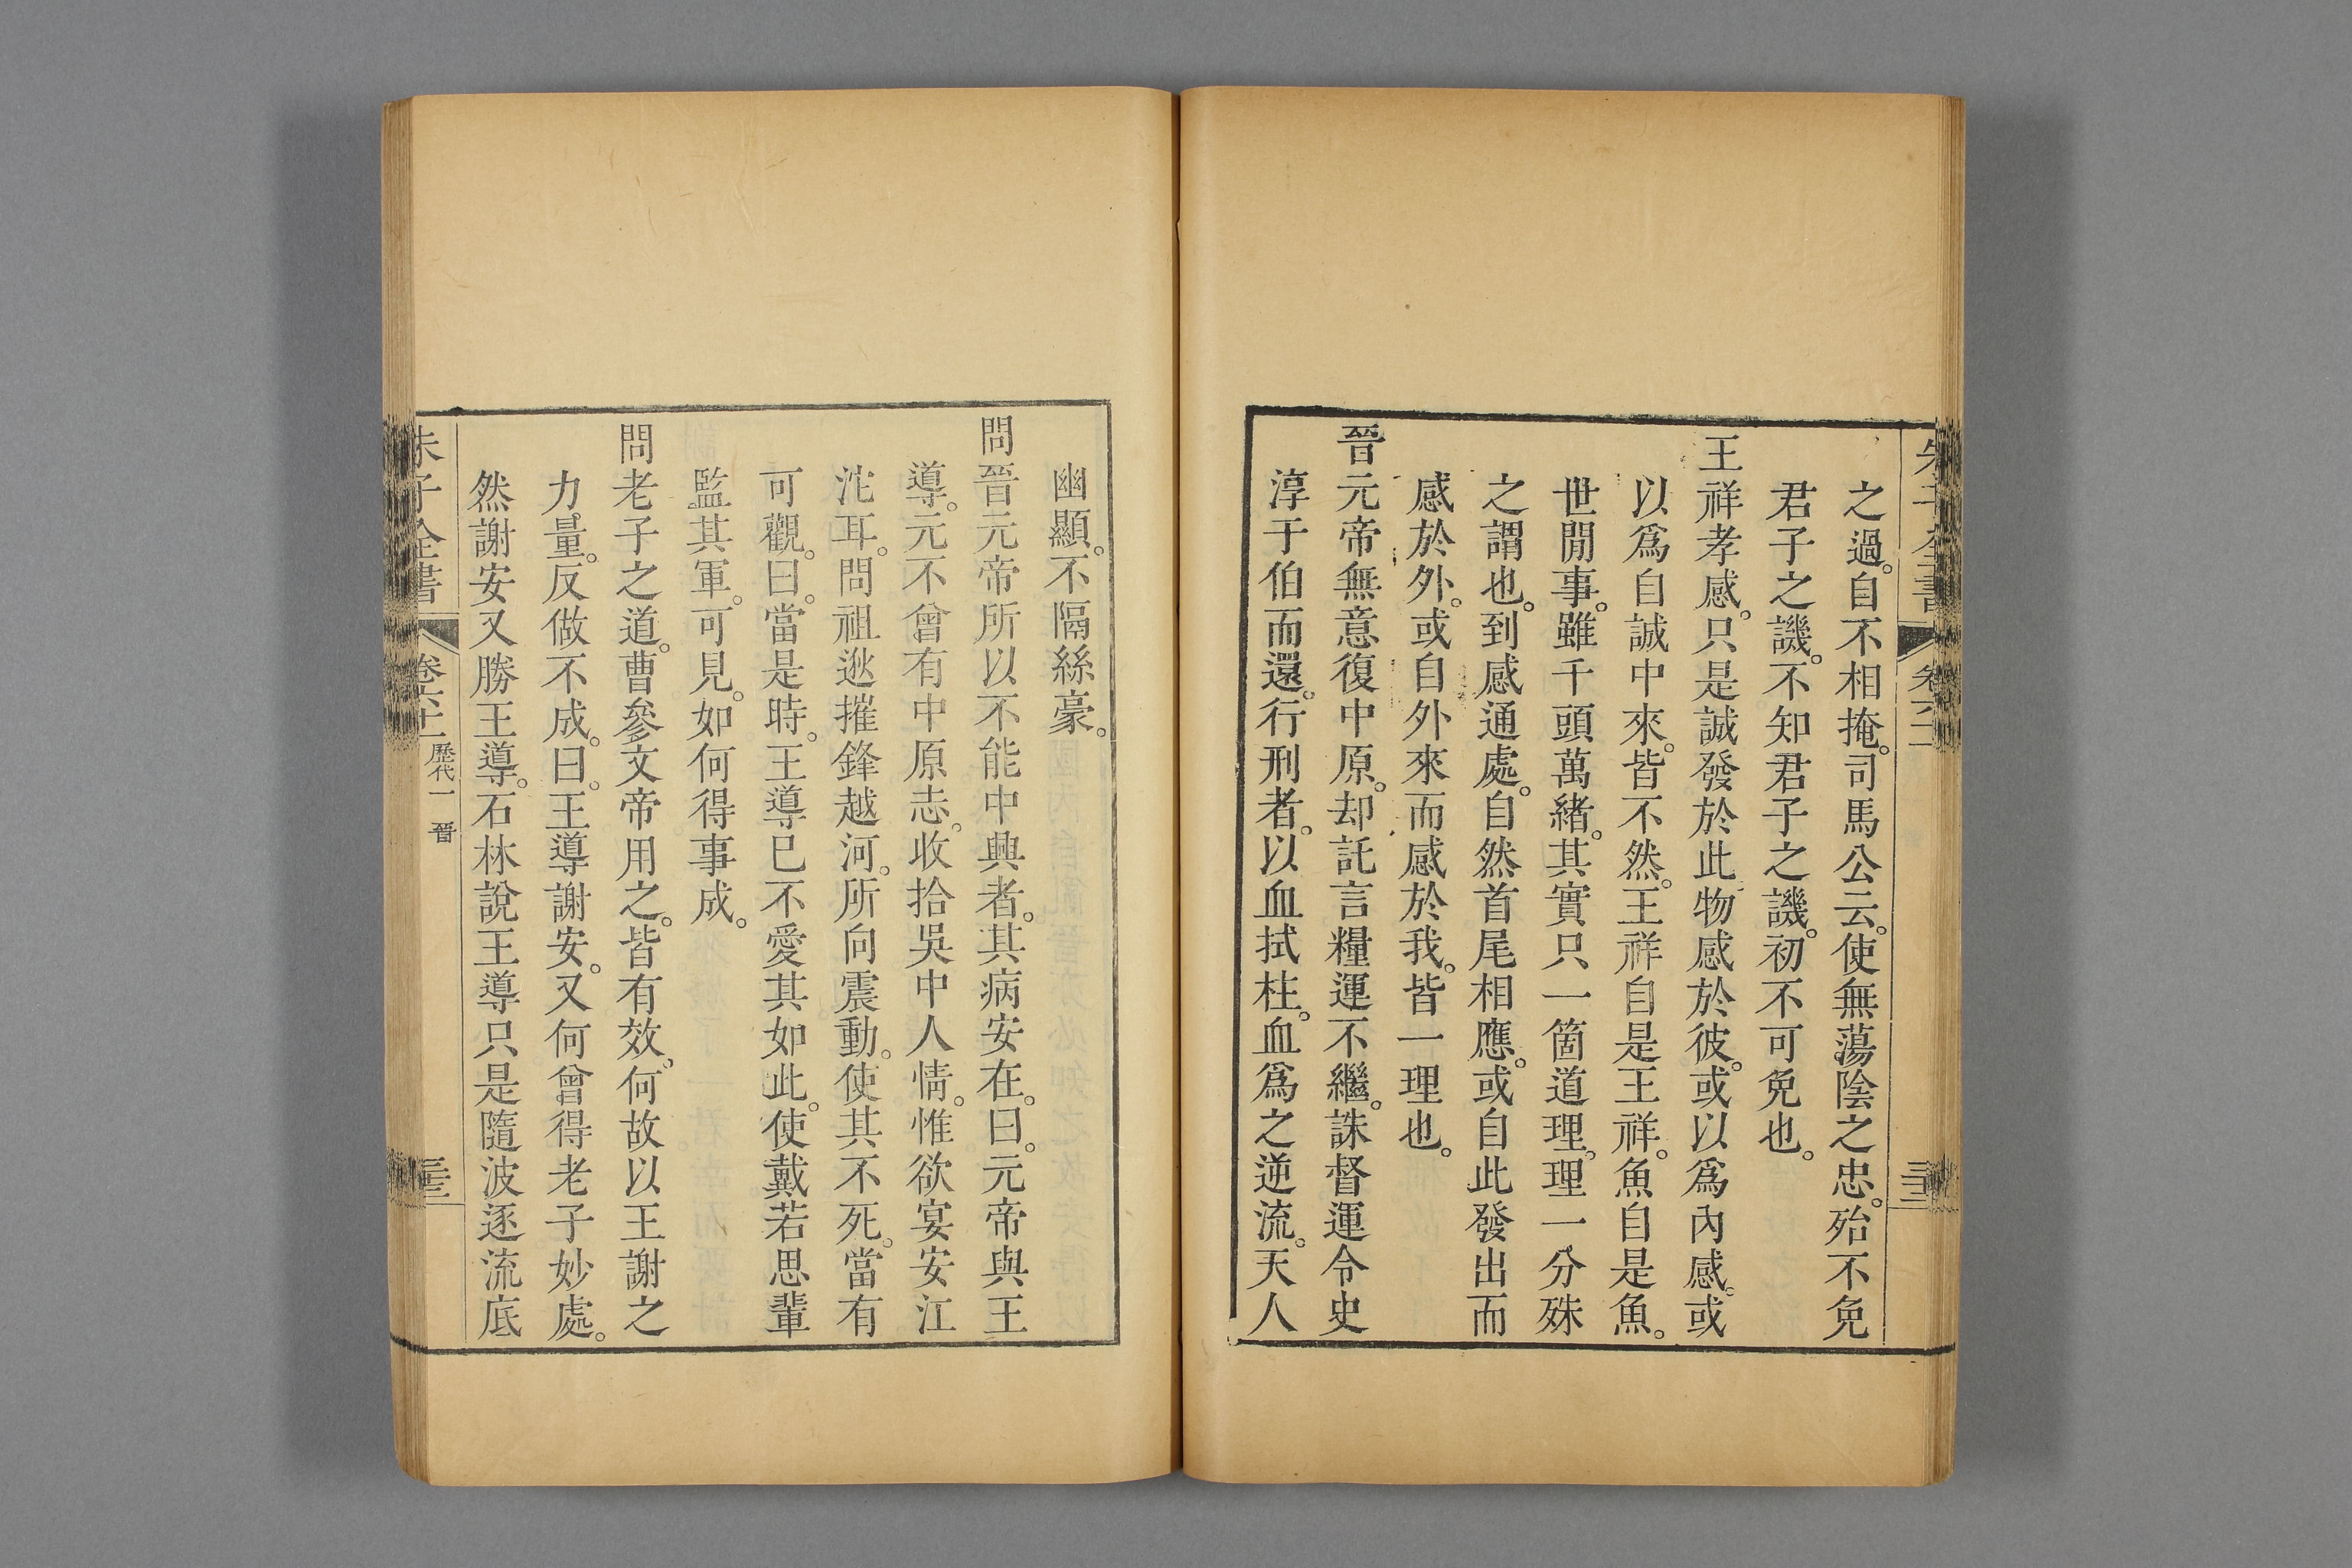 之過。自不相掩。司馬公云。使無蕩陰之忠。殆不免
君子之譏。不知君子之譏。初不可免也。
王祥孝感。只是誠發於此物感於彼。或以爲內感。或
以爲自誠中來。皆不然。王祥自是王祥。魚自是魚。
世閒事。雖千頭萬緒。其實只一箇道理。理一分殊
之謂也。到感通處。自然首尾相應。或自此發出而
感於外。或自外來而感於我。皆一理也。
晉元帝無意復中原。却託言糧運不繼。誅督運令史
淳于伯而還。行刑者。以血拭柱。血爲之逆流。天人
幽顯。不隔絲豪。
問晉元帝所以不能中興者。其病安在。曰。元帝與王
導。元不曾有中原志。收拾吳中人情。惟欲宴安江
沱耳。問祖逖摧鋒越河。所向震動。使其不死。當有
可觀。曰。當是時。王導已不愛其如此。使戴若思輩
監其軍。可見。如何得事成。
問老子之道。曹參文帝用之。皆有效。何故以王謝之
力量。反做不成。曰。王導謝安。又何曾得老子妙處。
然謝安又勝王導。石林說王導只是隨波逐流底
朱子全書
卷六十一
歷代一 晉